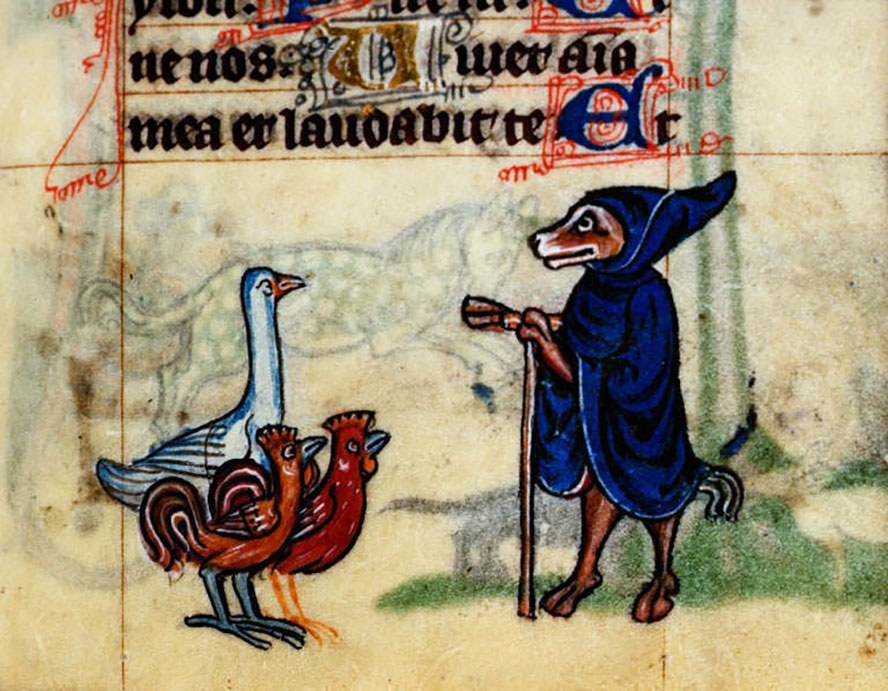 Et
ne nos. Uiuet aīa
mea et laudabit te Et